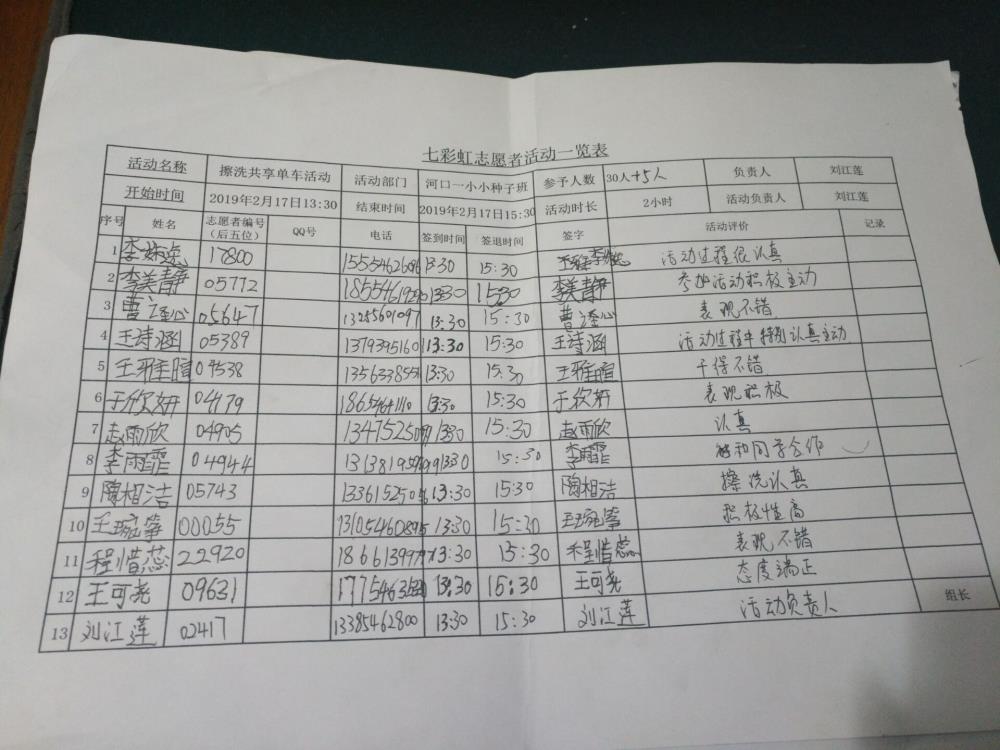 七彩虹志愿者活动一览表
活动名称 擦洗共享单车活动 活动部门 河口一小小种子班 参予人数 30人+5人 负责人 刘江莲
开始时间 2019年2月17日13:30 结束时间 2019年2月17日15:30 活动时长 2小时 活动负责人 刘江莲
序号 姓名 志愿者编号（后五位） QQ号 电话 签到时间 签退时间 签字 活动评价 记录
1 17800 13:30 15:30 活动过程很认真
2 李美静 05772 13:30 15:30 李美静 参加活动积极主动
3 05647 13255601097 13:30 15:30 表现不错
4 王诗涵 05389 1379395160 13:30 15:30 王诗涵 活动过程中特别认真主动
5 王雅萱 04538 13:30 15:30 王雅暄 干得不错
6 于欣妍 04179 13:30 15:30 于欣妍 表现积极
7 赵雨欣 04905 13:30 15:30 赵雨欣 认真
8 李雨霏 04944 1330 15:30 李雨霏 和同学合作
9 陶相洁 05743 13:30 15:30 陶相洁 擦洗认真
10 00055 13:30 15:30 积极性高
11 程惜蕊 22920 13:30 15:30 程惜蕊 表现不错
12 王可尧 09631 13:30 15:30 王可尧 态度端正
13 刘江莲 02417 13385462800 13:30 15:30 刘江莲 活动负责人 组长